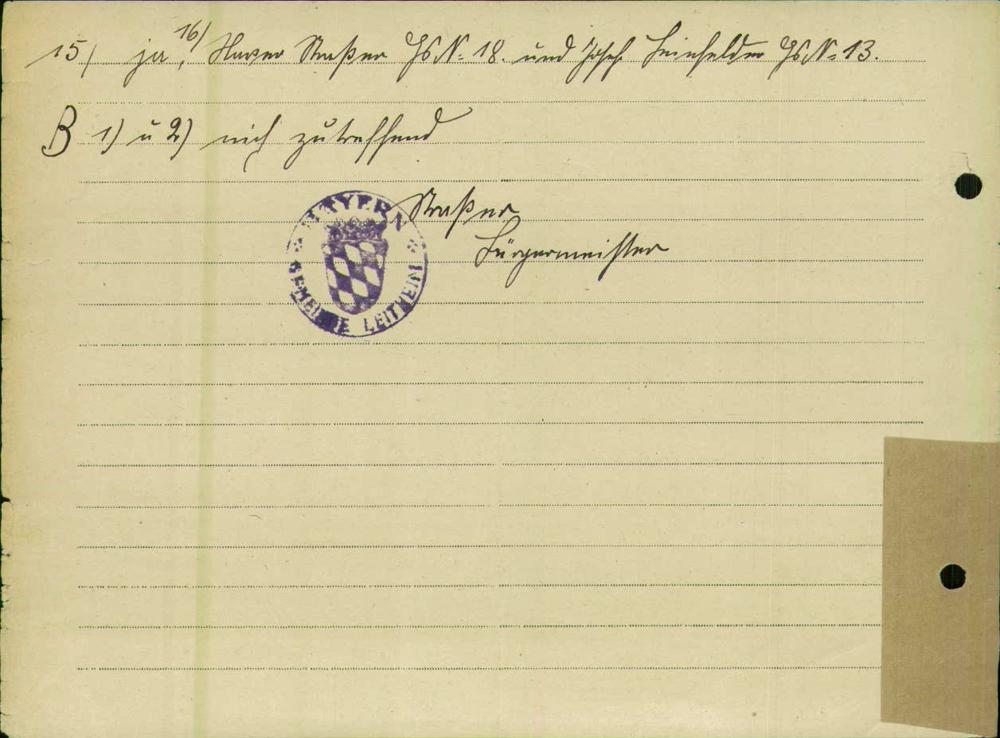 15/ ja, 16/ Xaver Straßer Hs N: 18. und Josef Leinfelder Hs N: 13.
B 1) u 2) nich zutreffend
Straßer
Bürgermeister
BAYERN
GEMEINDE LEITHEIM